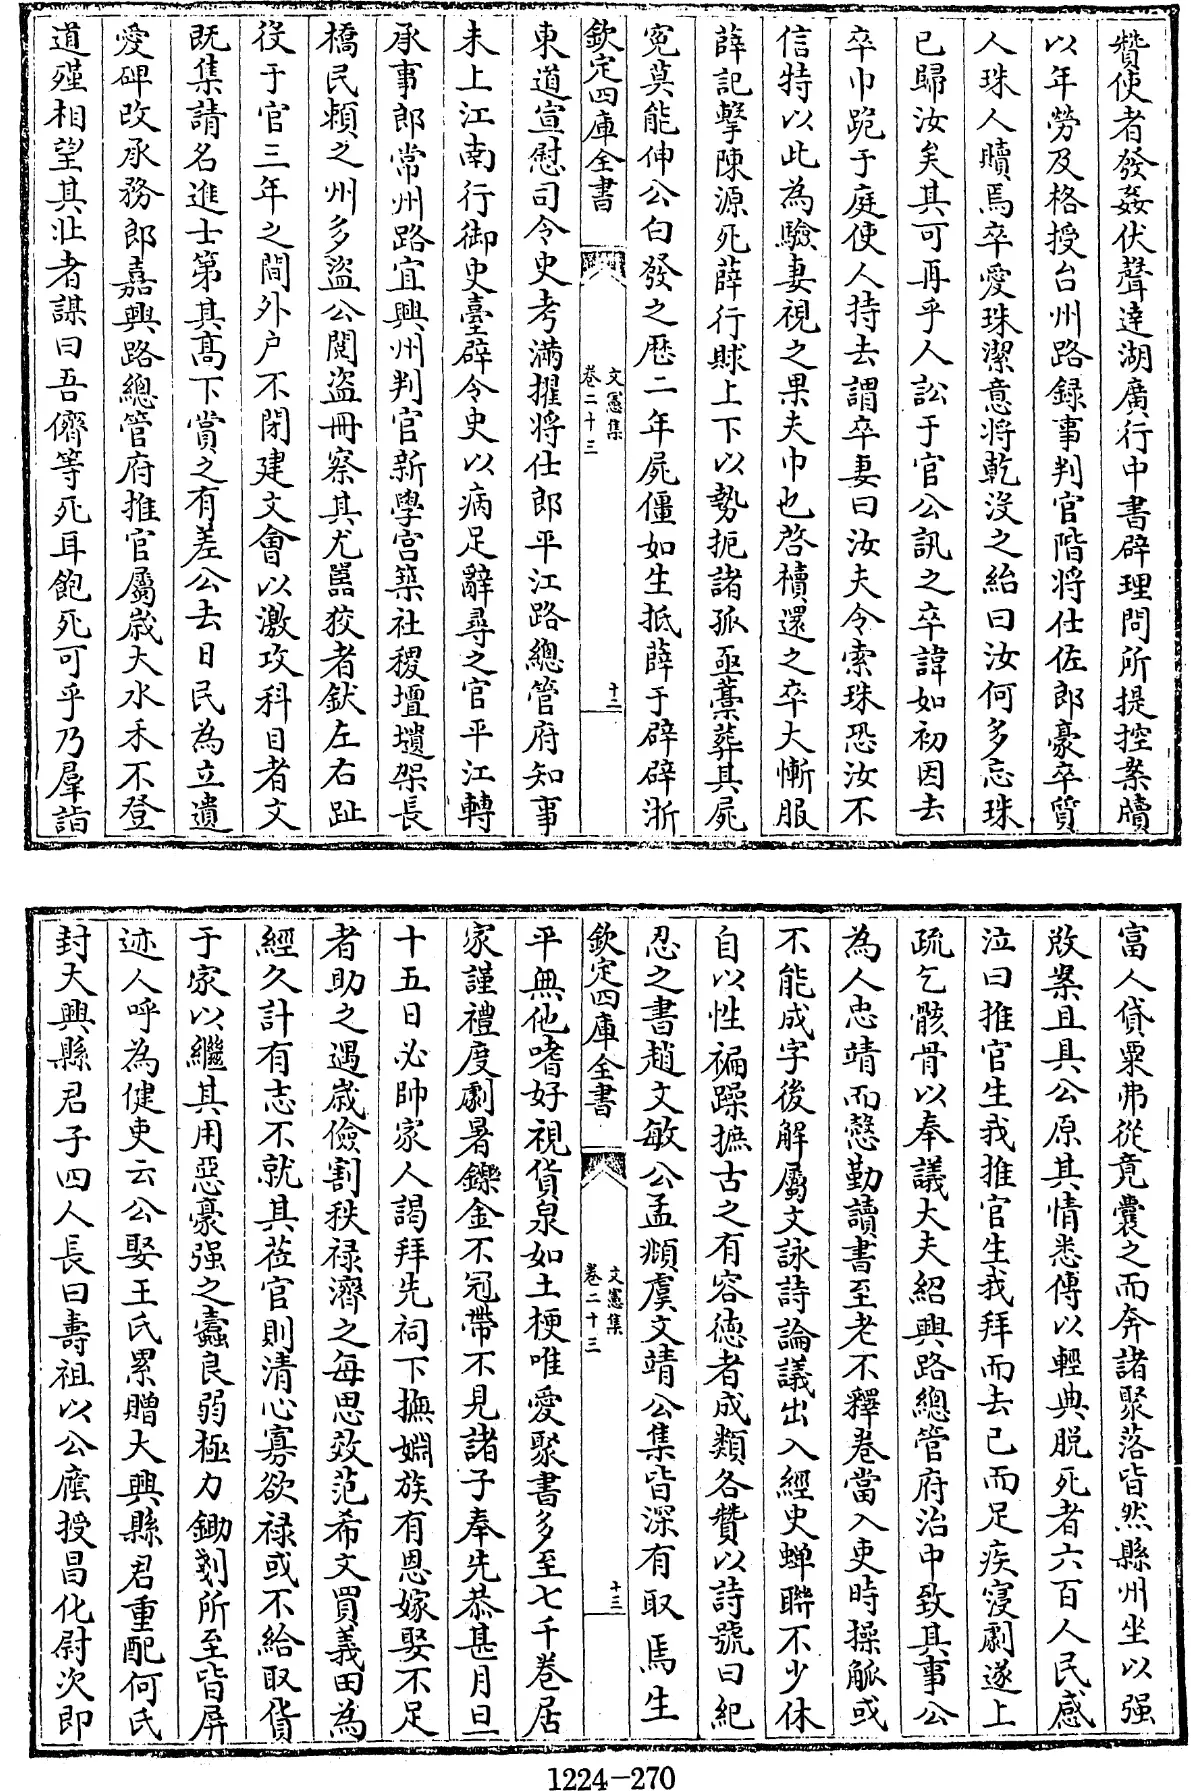 贊使者發姦伏聲達湖廣行中書辟理問所提控案牘
以年勞及格授台州路録事判官階将仕佐郎豪卒質
人珠人贖焉卒愛珠潔意将乾没之紿曰汝何多忘珠
已歸汝矣其可再乎人訟于官公訊之卒諱如初因去
卒巾跪于庭使人持去謂卒妻曰汝夫令索珠恐汝不
信特以此為驗妻視之果夫巾也啓櫝還之卒大慚服
薛記擊陳源死薛行賕上下以勢扼諸孤亟藁葬其屍
寃莫能伸公白發之歴二年屍僵如生抵薛于辟辟浙
欽定四庫全書
文憲集
卷二十三
十二
東道宣慰司令史考滿擢将仕郎平江路總管府知事
未上江南行御史臺辟令史以病足辭尋之官平江轉
承事郎常州路宜興州判官新學宫築社稷壇壝架長
橋民頼之州多盜公閲盜冊察其尤嚚狡者釱左右趾
役于官三年之間外户不閉建文會以激攻科目者文
既集請名進士第其髙下賞之有差公去日民為立遺
愛碑改承務郎嘉興路總管府推官屬嵗大水禾不登
道殣相望其壯者謀曰吾儕等死耳飽死可乎乃羣詣
富人貸粟弗從竟囊之而奔諸聚落皆然縣州坐以强
敓案且具公原其情悉傅以輕典脱死者六百人民感
泣曰推官生我推官生我拜而去已而足疾寖劇遂上
疏乞骸骨以奉議大夫紹興路總管府治中致其事公
為人忠靖而慤勤讀書至老不釋巻當入吏時操觚或
不能成字後解屬文詠詩論議出入經史蟬聨不少休
自以性褊躁摭古之有容徳者成類各贊以詩號曰紀
忍之書趙文敏公孟頫虞文靖公集皆深有取焉生
欽定四庫全書
文憲集
卷二十三
十三
平無他嗜好視貨泉如土梗唯愛聚書多至七千巻居
家謹禮度劇暑鑠金不冠帶不見諸子奉先恭甚月旦
十五日必帥家人謁拜先祠下撫婣族有恩嫁娶不足
者助之遇嵗儉割秩禄濟之毎思效范希文買義田為
經久計有志不就其莅官則清心寡欲禄或不給取貨
于家以繼其用惡豪强之蠧良弱極力鋤剗所至皆屏
迹人呼為健吏云公娶王氏累贈大興縣君重配何氏
封大興縣君子四人長曰壽祖以公廕授昌化尉次即
1224-270